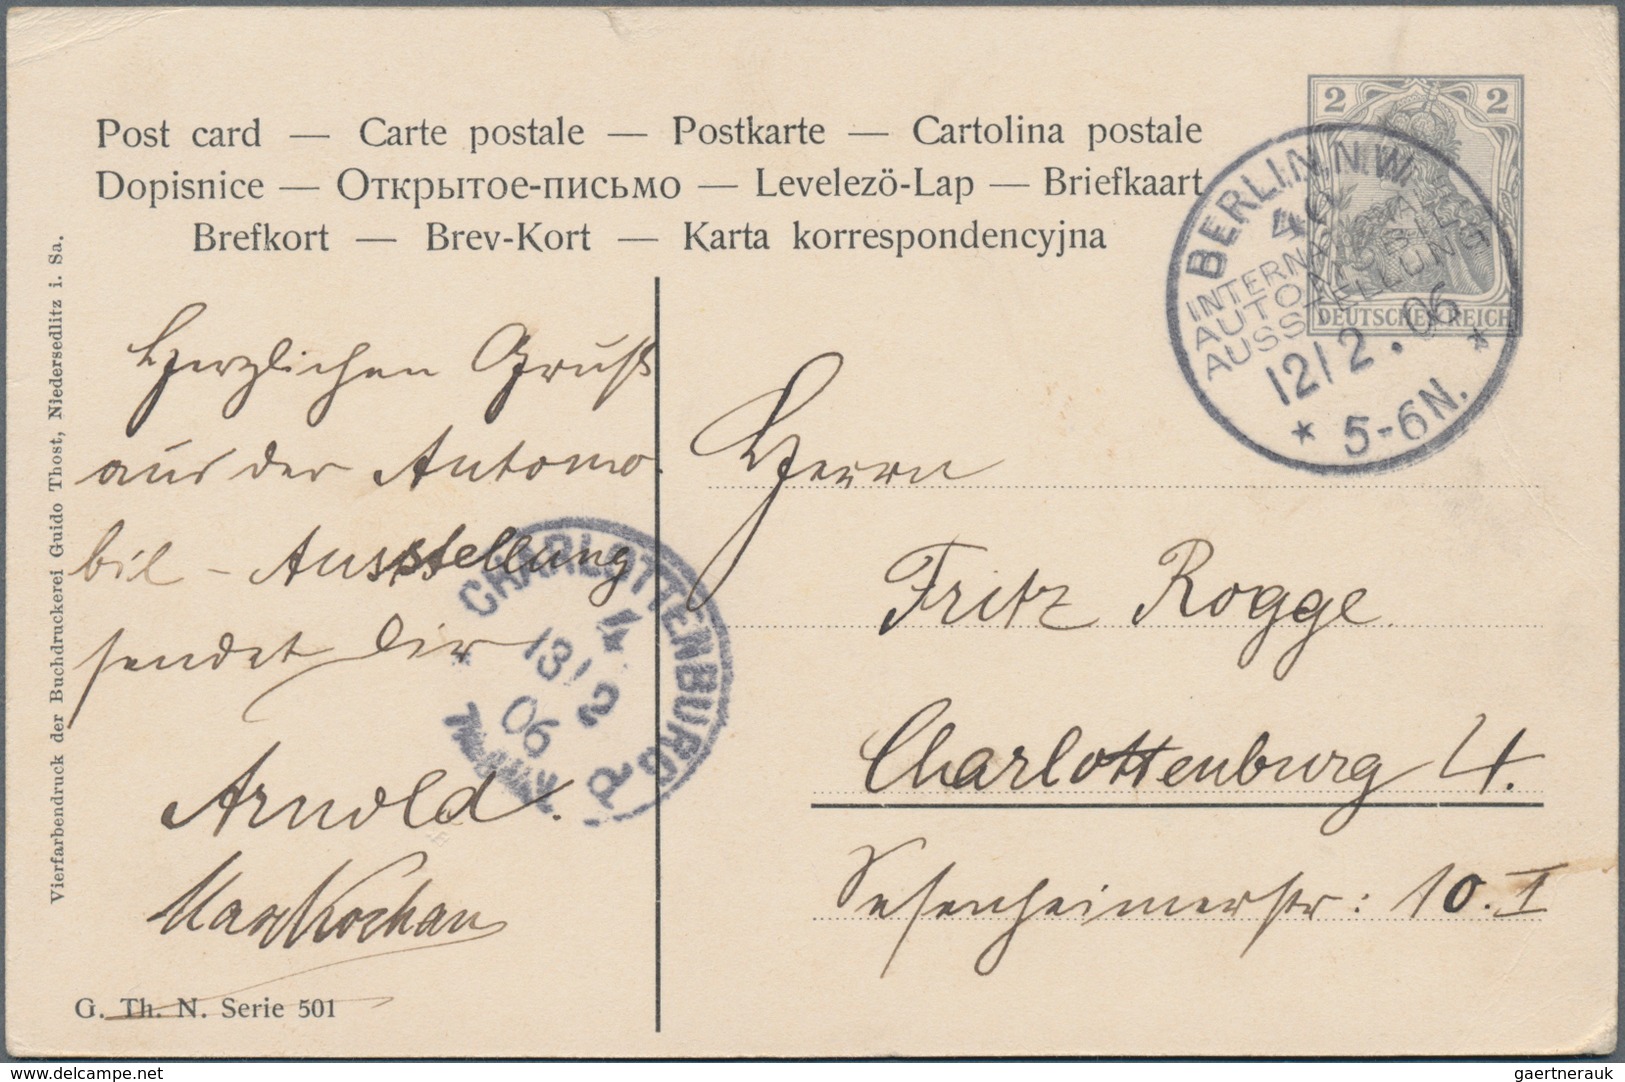 Post card — Carte postale — Postkarte — Cartolina postale
Dopisnice — Открытое-письмо — Levelezö-Lap — Briefkaart
Brefkort — Brev-Kort — Karta korrespondencyjna
2 2
DEUTSCHES REICH
BERLIN N.W.
40
INTERNATIONALE
AUTOMOBIL
AUSSTELLUNG
12/2.06
* 5-6N. *
Herzlichen Gruß
aus der Automo-
bil-Ausstellung
sendet Dir
Arnold.
Max Kochan
Herrn
Fritz Rogge
Charlottenburg 4.
Sesenheimerstr: 10.I
CHARLOTTENBURG
4
13/2
06
Vierfarbendruck der Buchdruckerei Guido Thost, Niedersedlitz i. Sa.
G. Th. N. Serie 501
www.delcampe.net
gaertnerauk